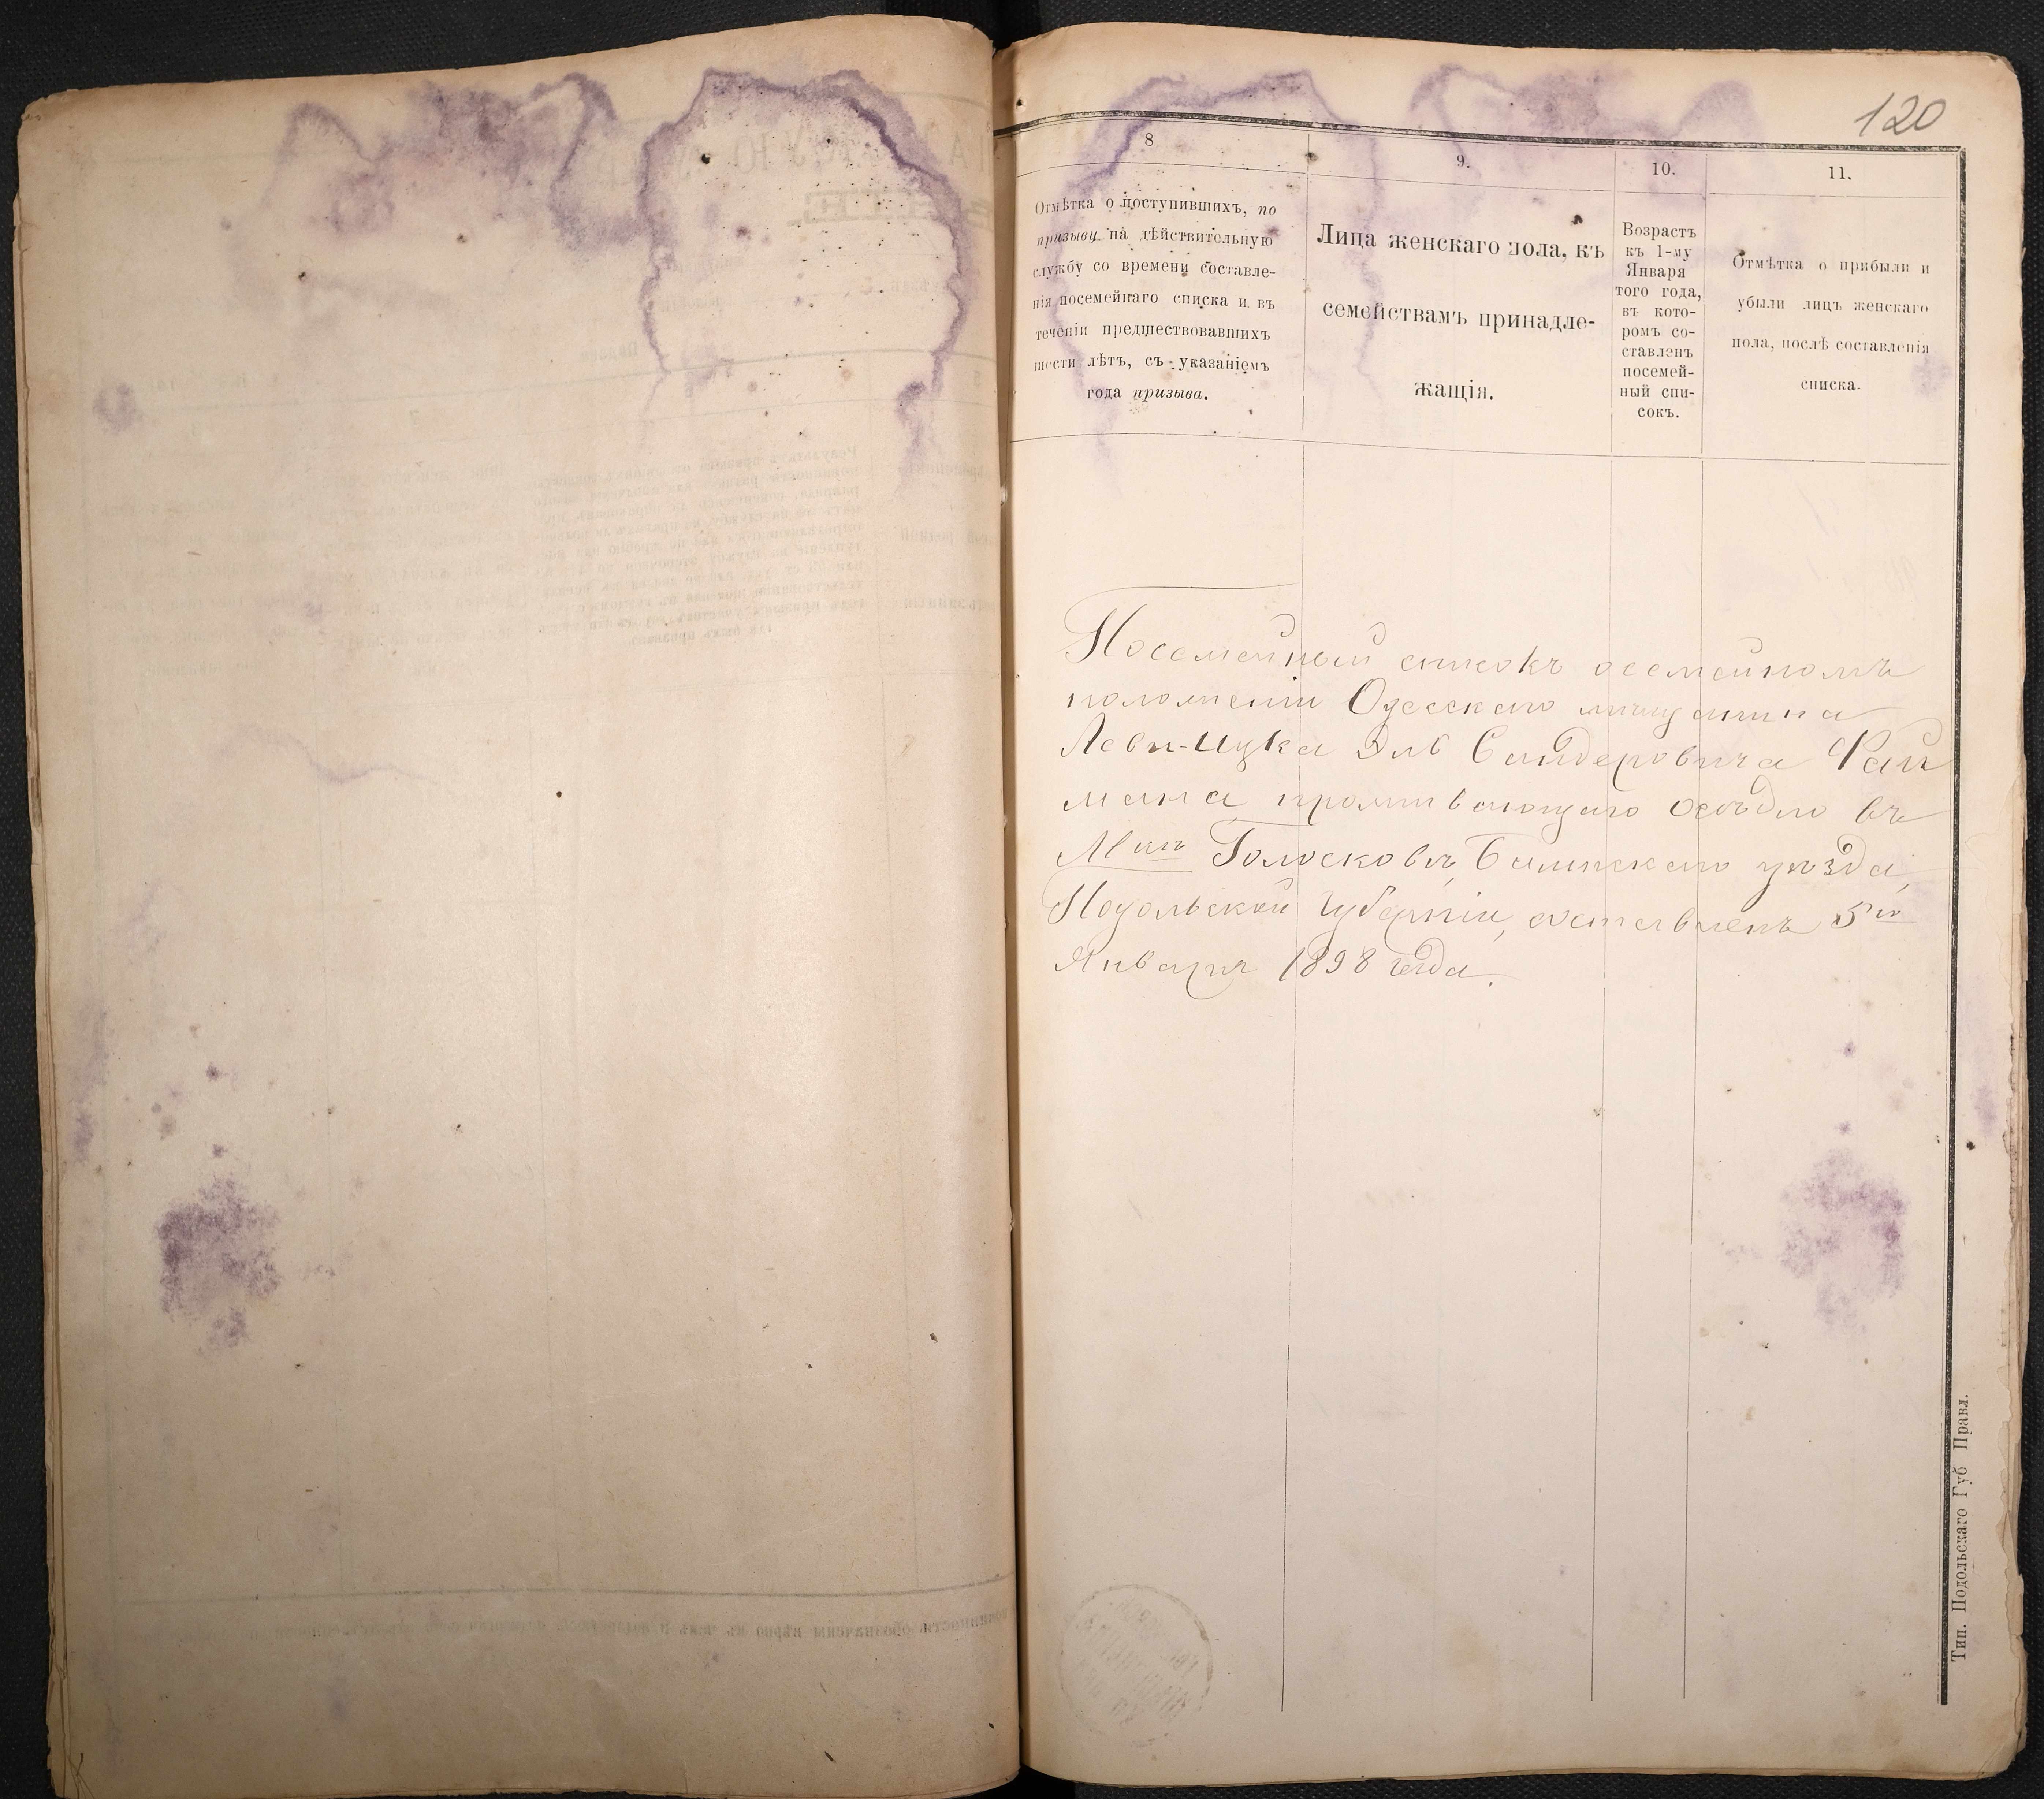 120
8
9.
10.
11.
Отмѣтка о поступившихъ, по
призыву на дѣйствительную
службу со времени составле-
нія посемейнаго списка и въ
теченіи предшествовавшихъ
шести лѣтъ, съ указаніемъ
года призыва.
Лица женскаго пола, къ
семействамъ принадле-
жащія.
Возрастъ
къ 1-му
Января
того года,
въ кото-
ромъ со-
ставленъ
посемей-
ный спи-
сокъ.
Отмѣтка о прибыли и
убыли лицъ женскаго
пола, послѣ составленія
списка.
Посемейный списокъ осемейномъ
положеніи Одесскаго мѣщанина
Леви-Ицка Сендеровича Рай
мана проживающаго осѣдло въ
Голосковѣ, Балтскаго уѣзда,
Подольской губерніи, составленъ 5го
Января 1898 года.
Тип. Подольскаго Губ Правл.